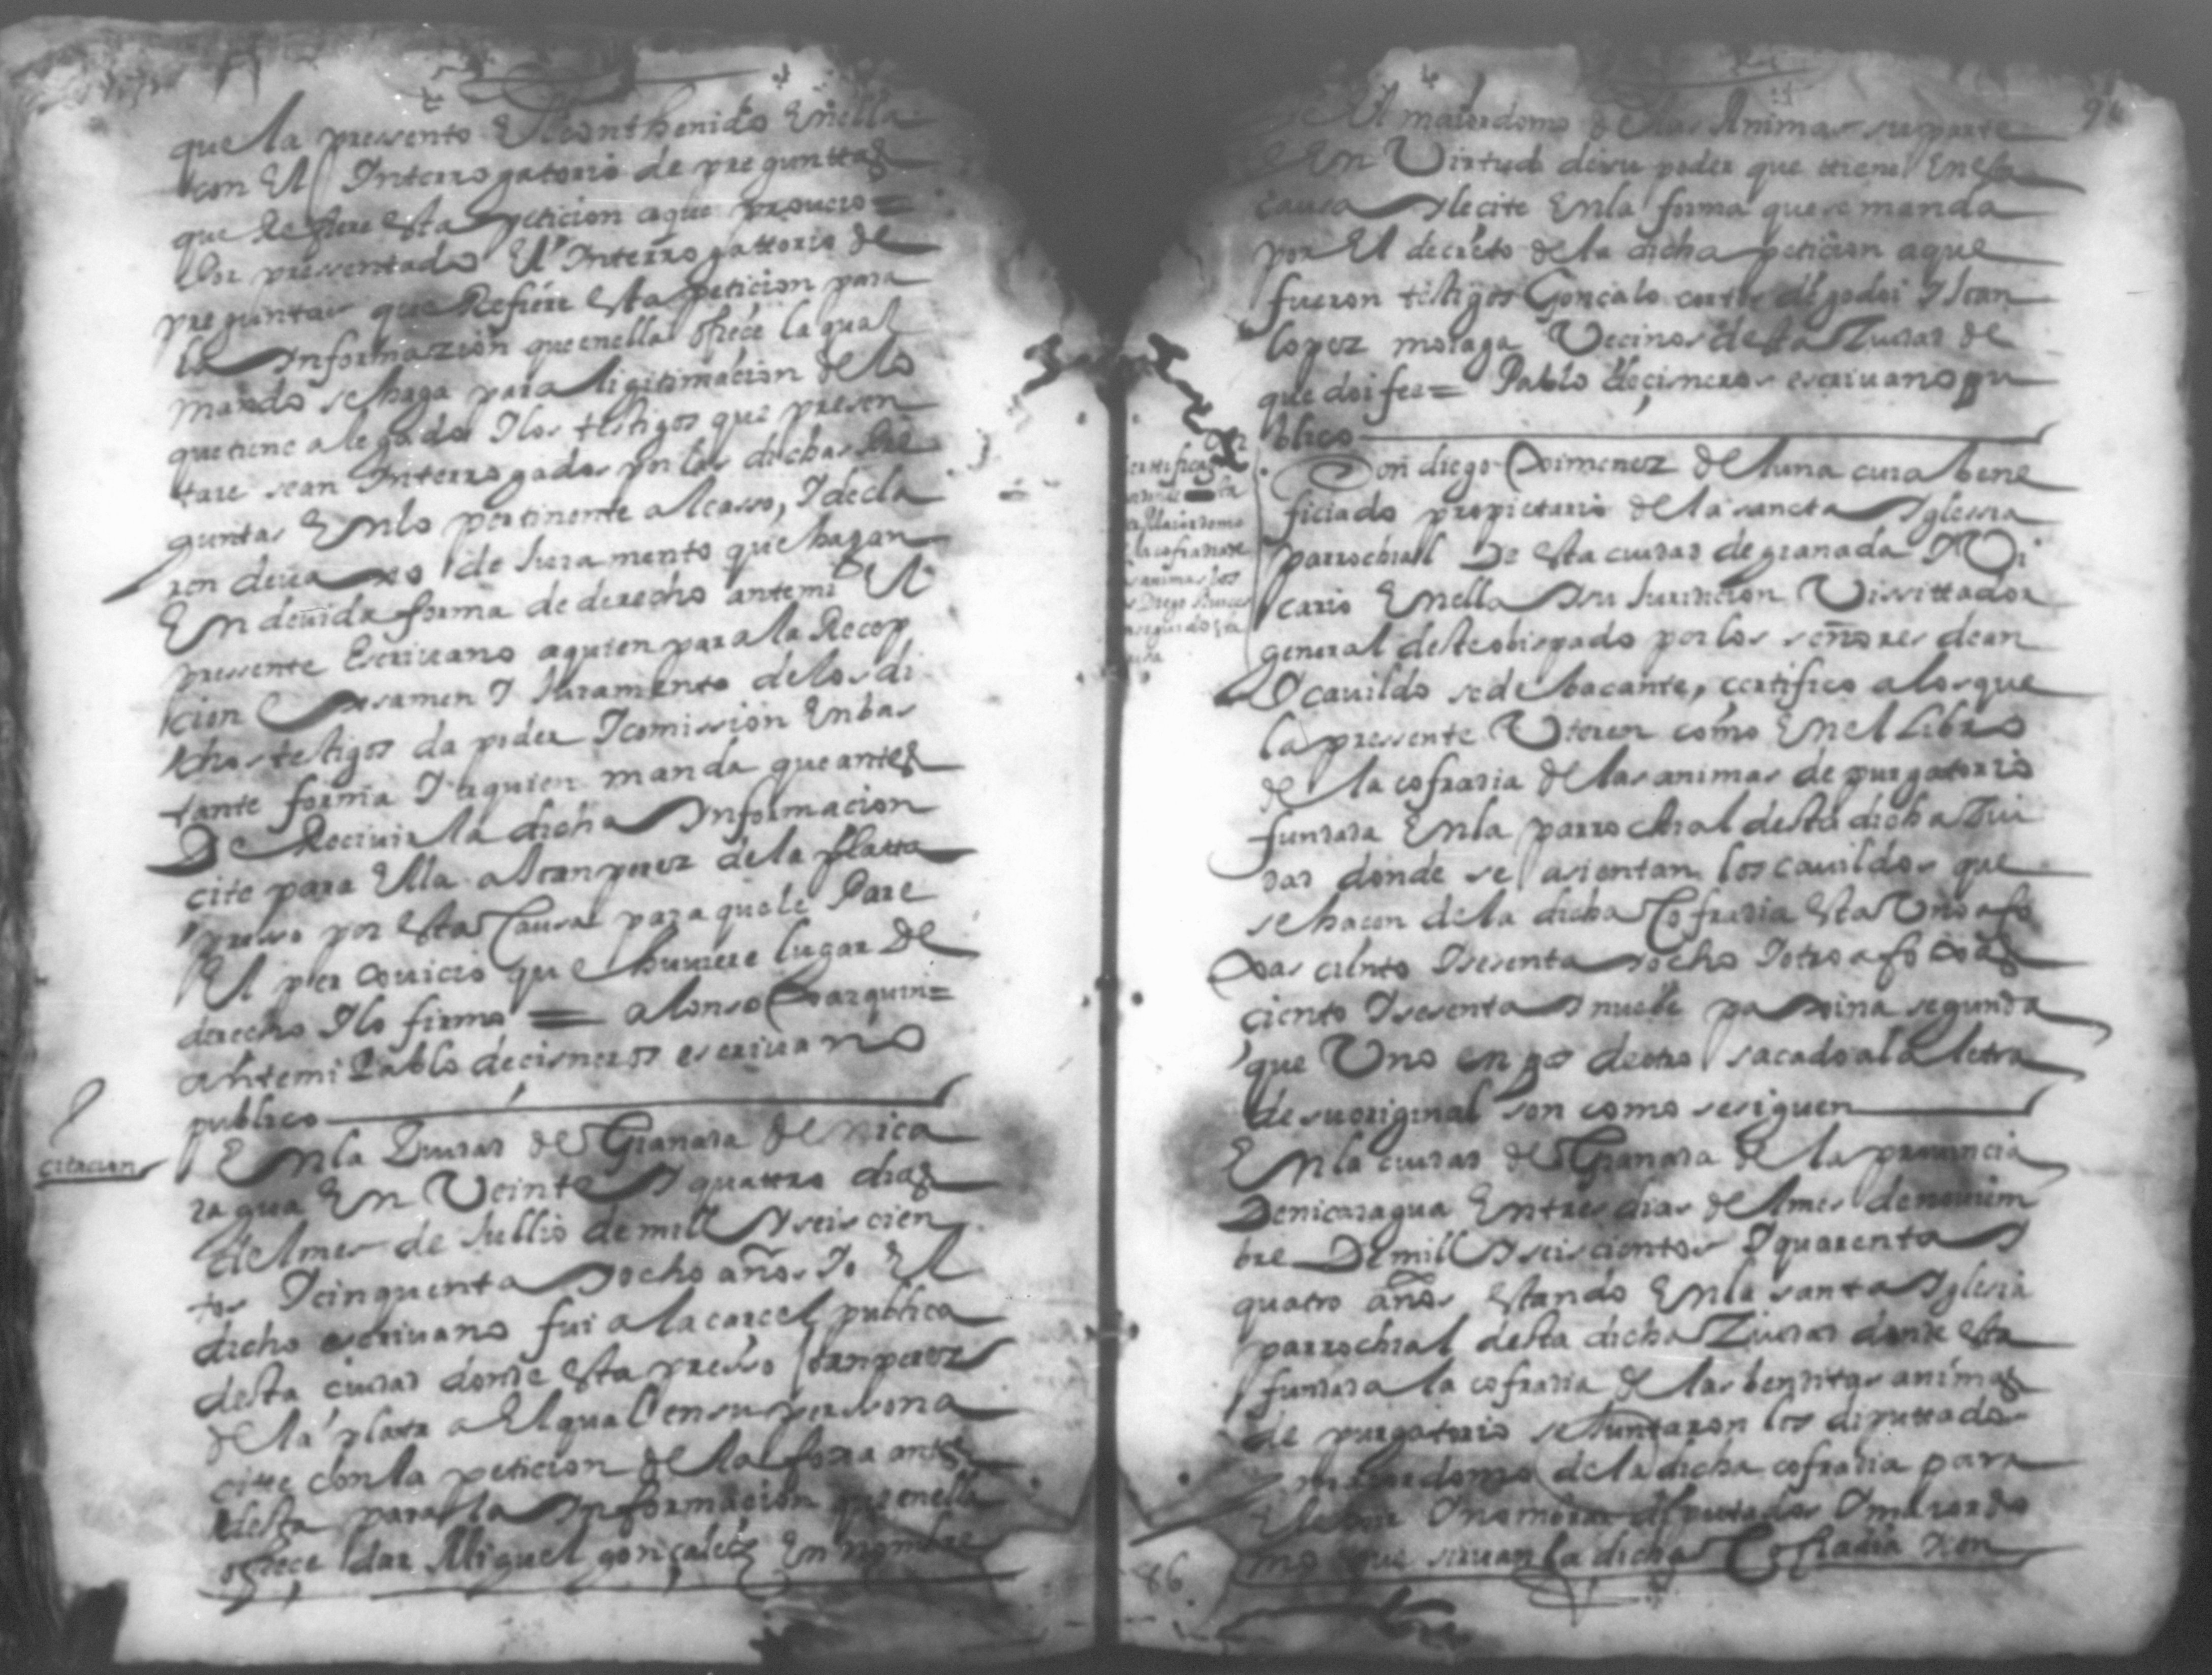 que la pressento El conthenido Enella
con El Interrogatorio de preguntas
que Refiere esta peticion a que proveio =
por presentado El Interrogattorio de
preguntas que Refiere esta peticion para
la Informazion que enella ofrece la qual
mando se haga para ligitimacion de lo
que tiene alegado I los testigos que presen
tare sean Interrogados por las dichas pre
guntas Enlo pertinente al casso, I decla
ren devaxo de Juramento que hagan
En devida forma de derecho antemi El
pressente Escrivano a quien para la Recep
cion Esamen I Juramento de los di
chos testigos da poder I comission En bas
tante forma I a quien manda que antes
De Recivir la dicha Informacion
cite para Ella a Joan perez de la plata
presso por esta Causa para que le Pare
El perJovicio que huviere lugar De
derecho I lo firmo = alonso Joarquin =
antemi Pablo de cisneros escrivano
publico
citacion
Enla Ziudad de Granada de nica
ragua En Veinte I quattro dias
del mes de Jullio de mill I seis cien
tos I cinquenta I ocho años Io El
dicho escrivano fui a la carcel publica
desta ciudad donde esta presso Joan perez
de la plata a El qual en su perssona
citte con la peticion de la foxa antes
desta para la Informacion que enella
ofrece dar Miguel gonçalez En nombre
94
El maiordomo de las Animas su parte
En Virtud de su poder que tiene En esta
causa I le cite Enla forma que se manda
por El decreto de la dicha peticion a que
fueron testigos Gonçalo cortes de godoi I Joan
lopez moraga Vecinos desta Ziudad de
que doi fee = Pablo de cisneros escrivano pu
blico
Don diego Ximenez de luna cura bene
ficiado propietario de la sancta Iglessia
parrochial De esta ciudad de granada I Vi
cario Enella I su Juridicion Vissittador
general deste obispado por los señores dean
I cavildo sede bacante, certifico a los que
la pressente Vieren como Enel Libro
de la cofradia de las animas de purgatorio
fundada Enla parrochial desta dicha Ziu
dad donde se asientan los cavildos que
se hacen de la dicha Cofradia esta Uno a fo
xas ciento I sesenta I ocho I otro a foxas
ciento I sesenta I nueve paxina segunda
que Uno en pos de otro sacado a la letra
de su original son como se siguen
Enla ciudad de Granada de la provincia
De nicaragua En tres dias del mes de noviem
bre De mill I seiscientos I quarenta I
quatro años estando Enla santa Iglesia
parrochial desta dicha Ziudad donde esta
fundada la cofradia de las benditas animas
de purgatorio se Juntaron los diputtados
maiordomo de la dicha cofradia para
Elexir I nombrar diputados I maiordo
mo que sirvan la dicha Cofradia
86